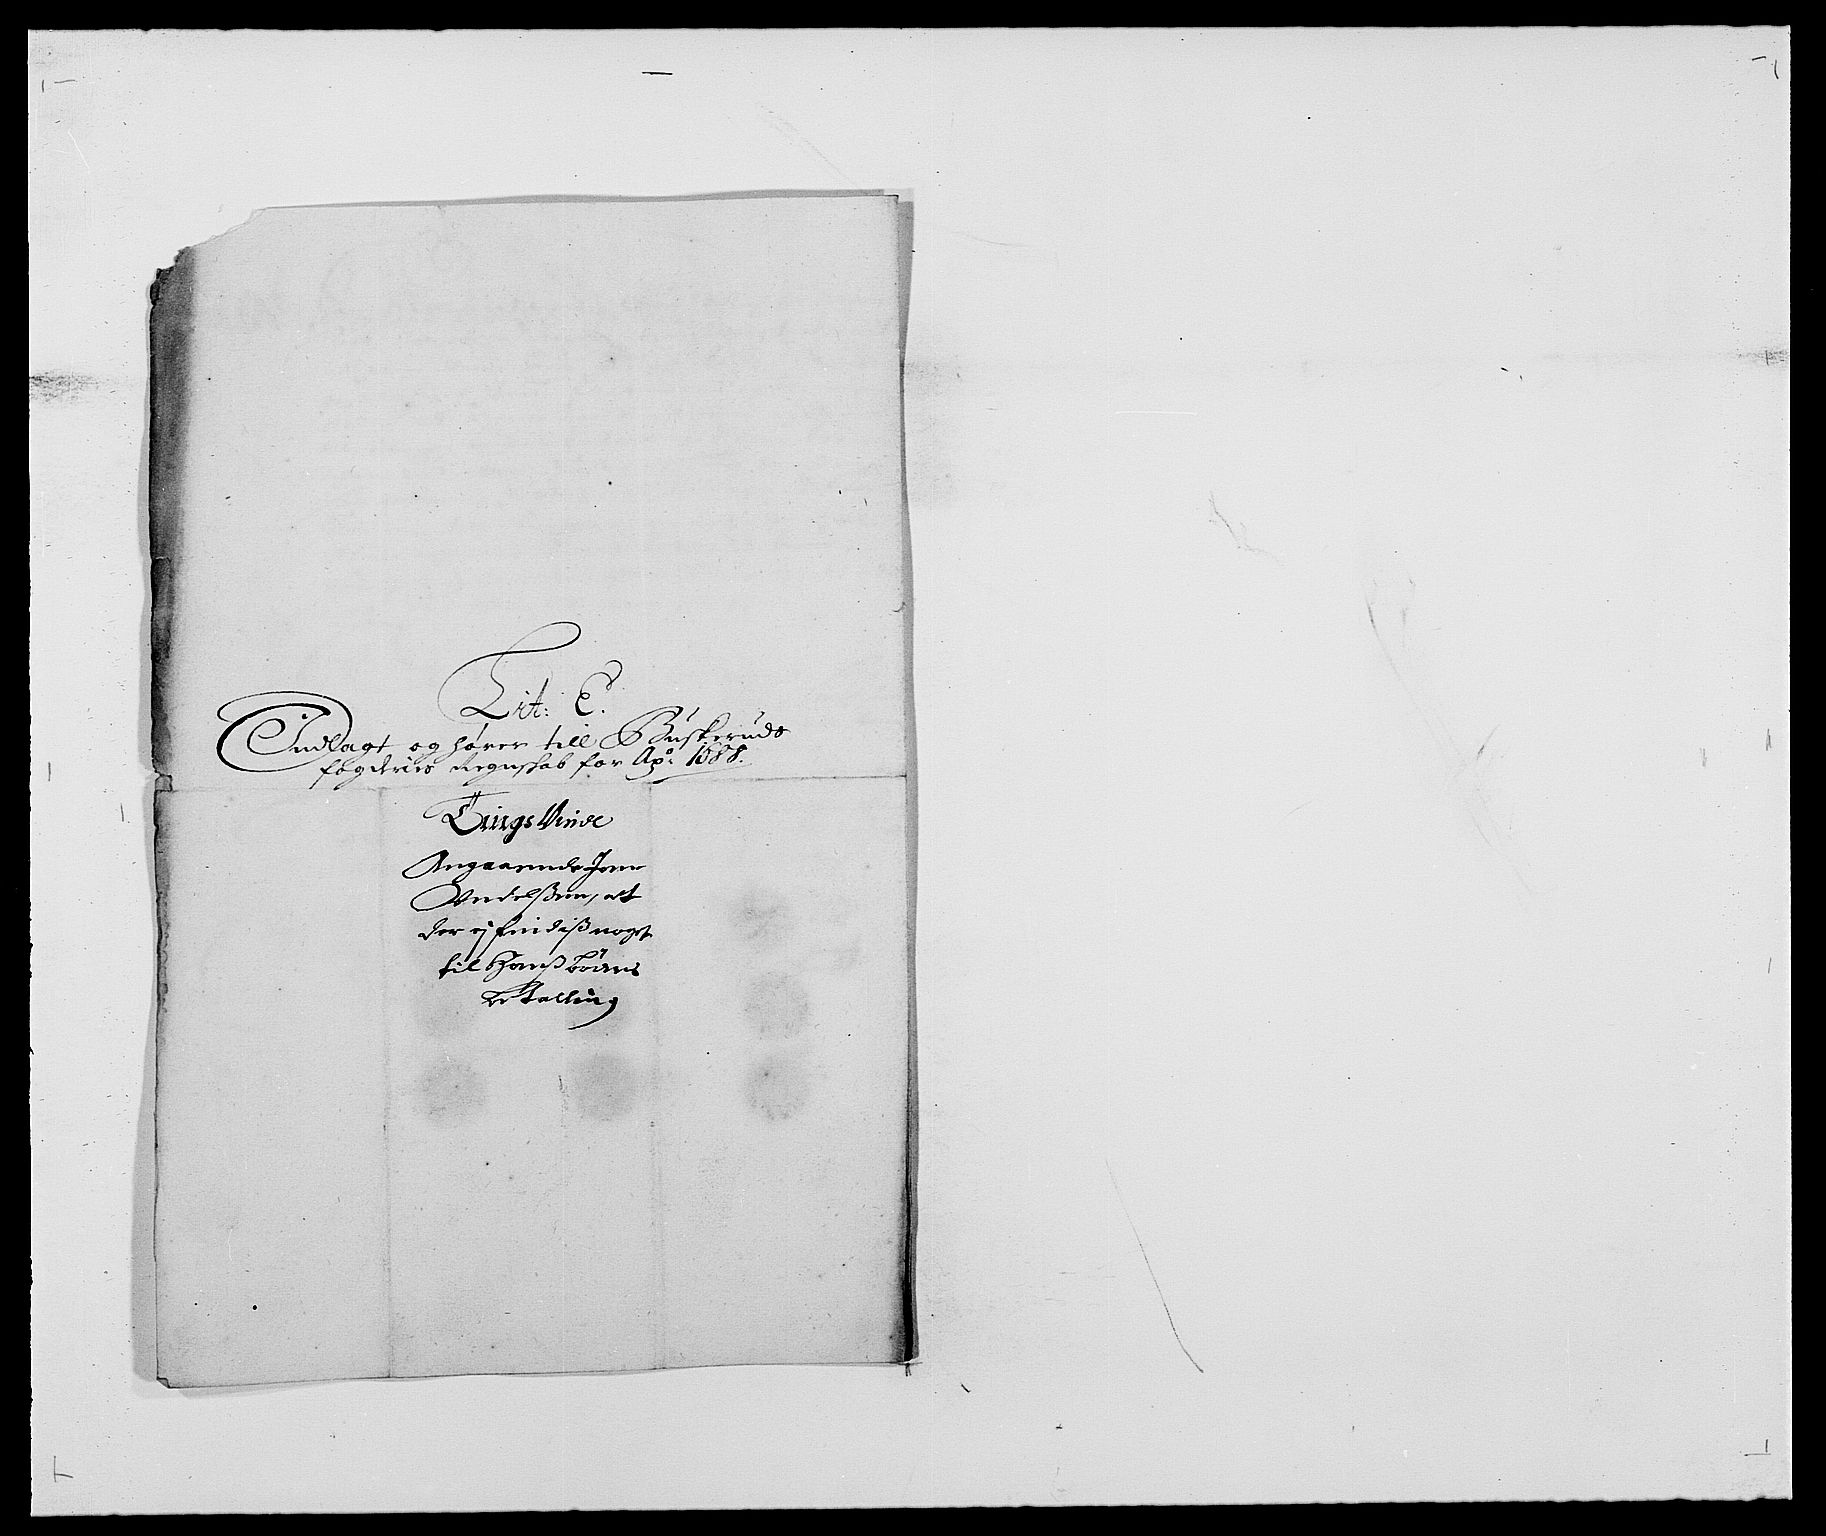 Lit: E.
Indlagt og hører till Buskeruds
fogderies Regnskab for Ao: 1688.
Tings Vinde
Angaaende Jens
Vedelßen, at
der ej findiß noget
til Hanß
betalling